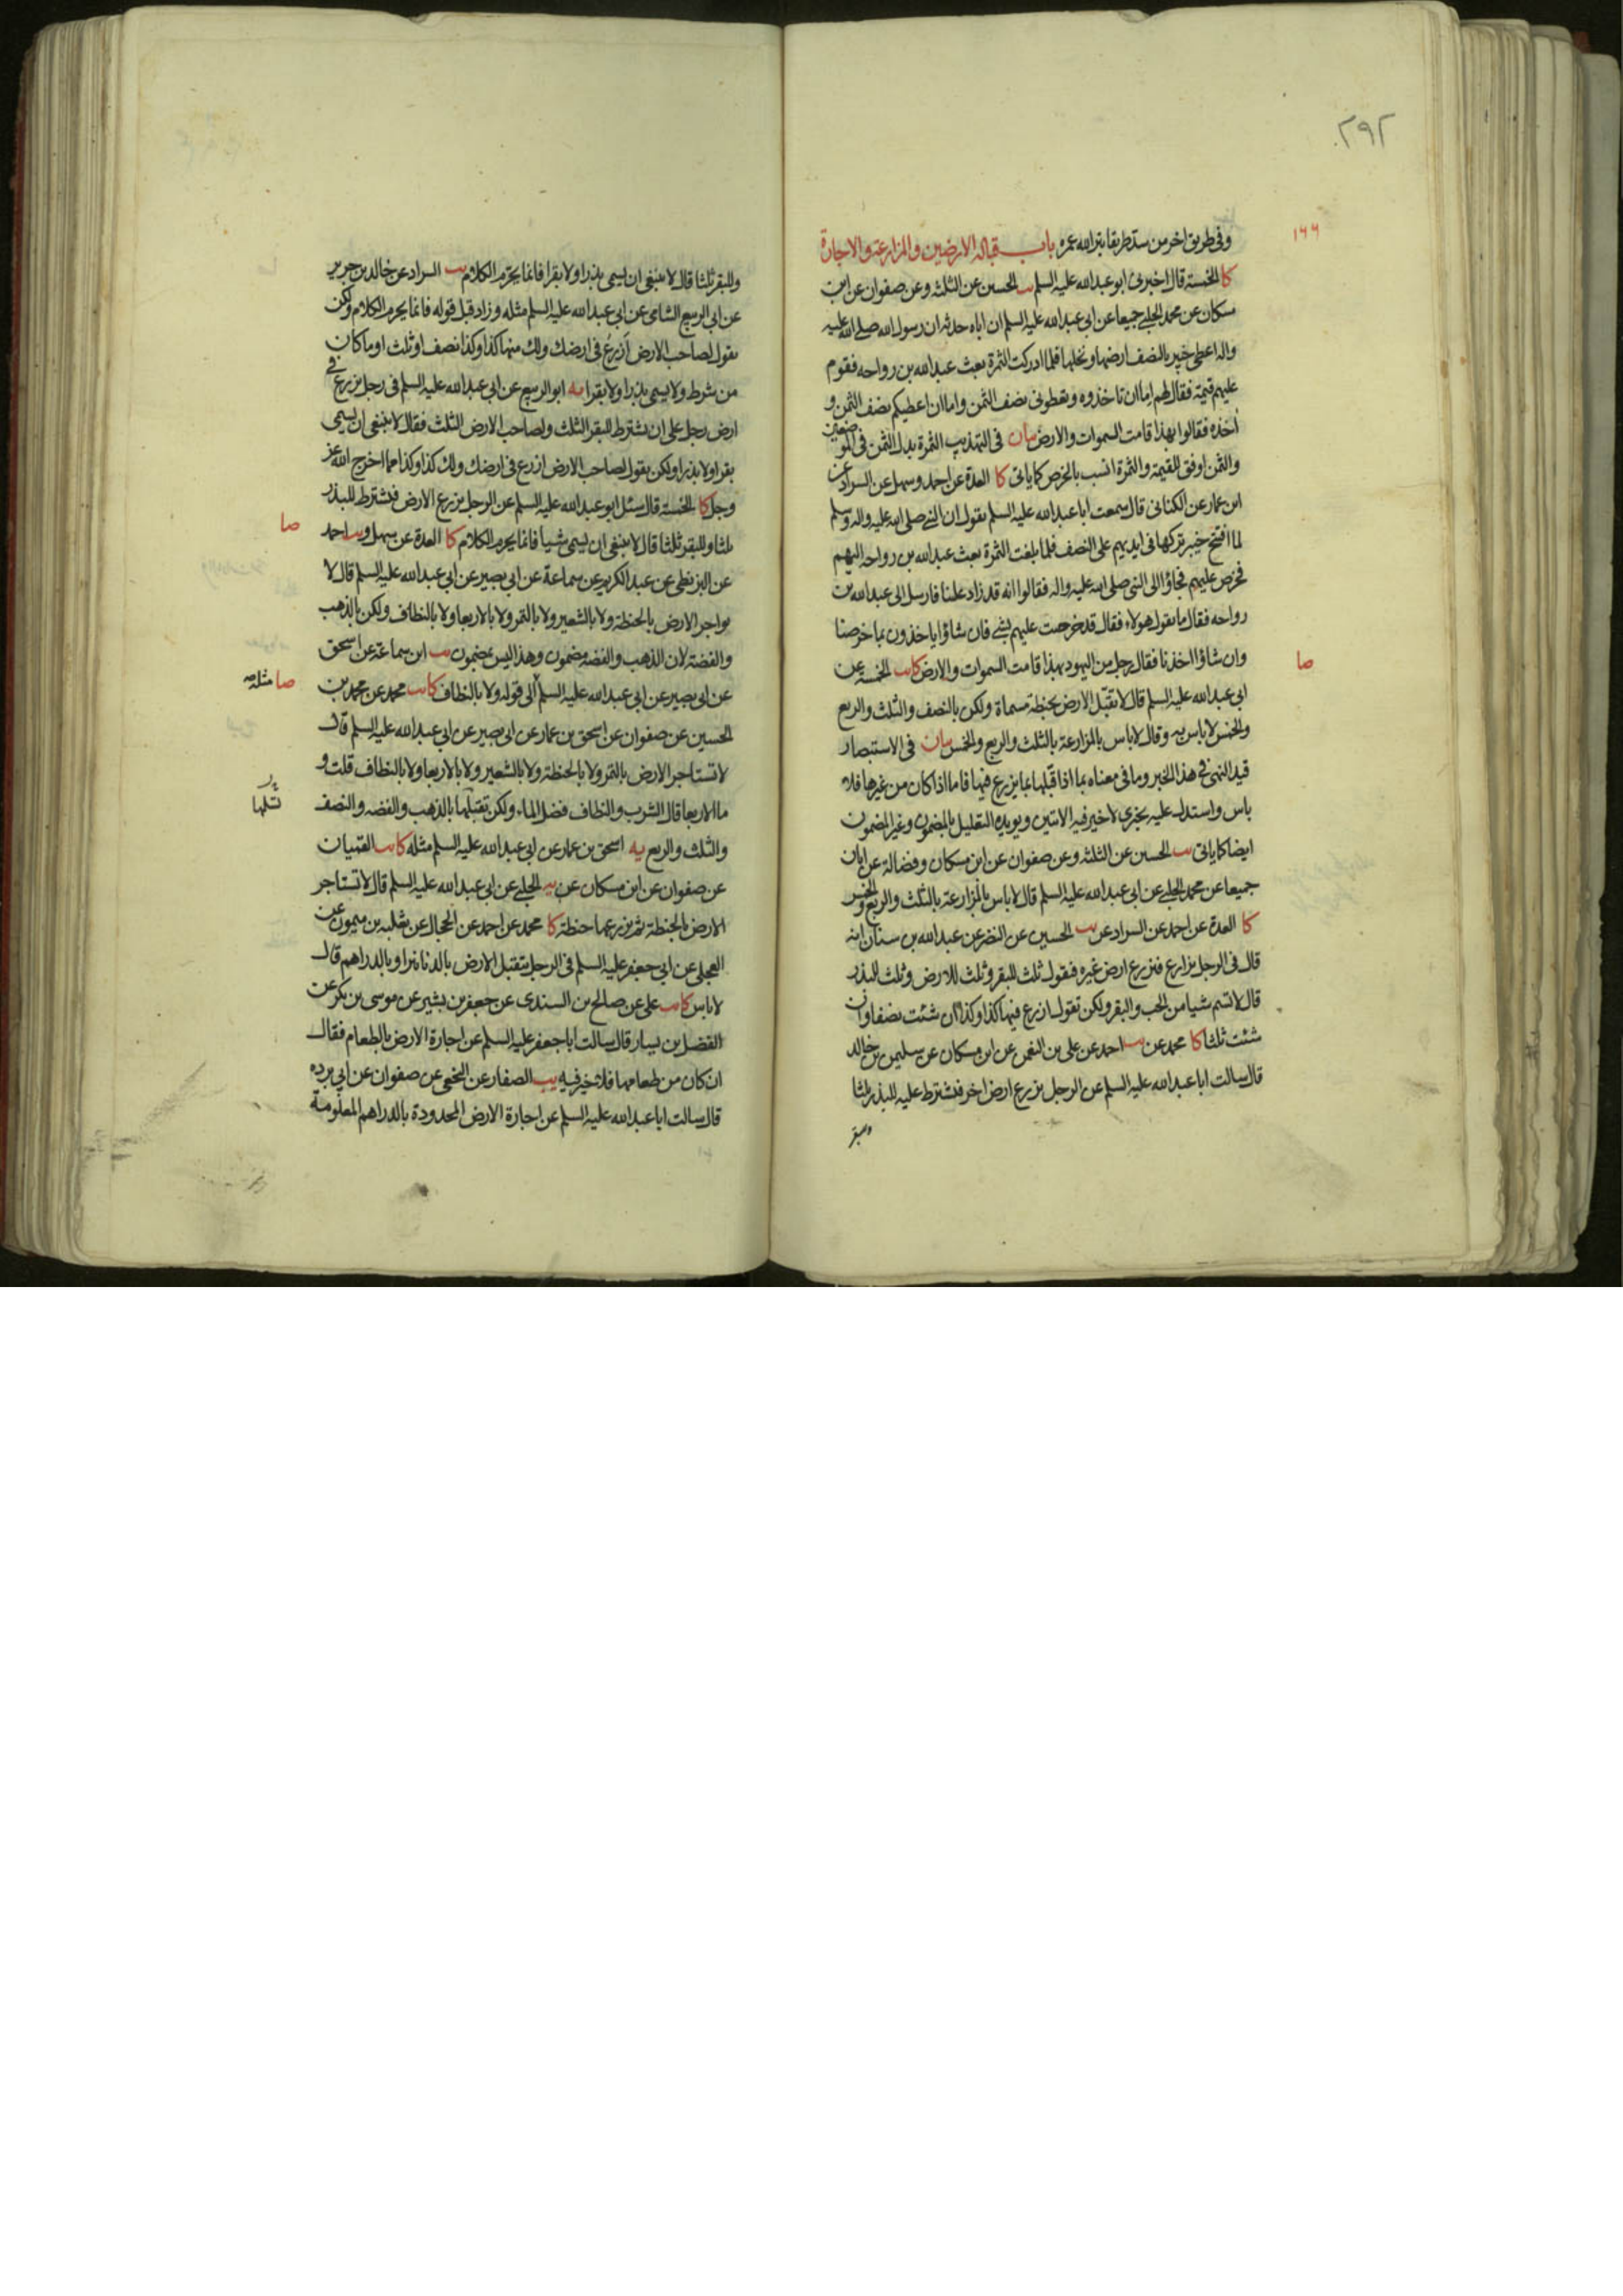 ٢٩٢
١٦٦
وفى طريق اخر من سد طريقا بتر الله عمره باب قبالة الارضين والمزارعة والاجارة
كا الخمسة قال اخبرنى ابو عبدالله عليه السلم يب الحسين عن الثلثة وعن صفوان عن ابن
مسكان عن محمد الحلبى جميعا عن ابى عبدالله عليه السلم ان اباه حدثه ان رسول الله صلى الله عليه
واله اعطى خيبر بالنصف ارضها ونخلها فلما ادركت الثمرة بعث عبدالله بن رواحه فقوم
عليهم قيمة فقال لهم اما ان تاخذوه وتعطونى نصف الثمن واما ان اعطيكم نصف الثمن و
اخذه فقالوا بهذا قامت السموات والارض بيان فى التهذيب الثمرة بدل الثمن فى الموضعين
والثمن اوفق للقيمة والثمرة انسب بالخرص كما ياتى كا العدة عن احمد وسهل عن السراد عن
ابن عمار عن الكنانى قال سمعت ابا عبدالله عليه السلم يقول ان النبى صلى الله عليه واله وسلم
لما افتتح خيبر تركها فى ايديهم على النصف فلما بلغت الثمرة بعث عبدالله بن رواحه اليهم
فخرص عليهم فجاؤا الى النبى صلى الله عليه واله فقالوا انه قد زاد علينا فارسل الى عبدالله بن
رواحه فقال ما يقول هولاء فقال قد خرصت عليهم بشى فان شاؤا ياخذون بما خرصنا
وان شاؤا اخذنا فقال رجل من اليهود بهذا قامت السموات والارض كا يب الخمسة عن
صا
ابى عبدالله عليه السلم قال لا تقبل الارض بحنطة مسماة ولكن بالنصف والثلث والربع
والخمس لا باس به وقال لا باس بالمزارعة بالثلث والربع والخمس بيان فى الاستبصار
قيد النهى فى هذا الخبر وما فى معناه بما اذا قبلها بما يزرع فيها فاما اذا كان من غيرها فلا
باس واستدل عليه بخبرى لا خير فيه الاتيين ويويده التعليل بالمضمون وغير المضمون
ايضا كما ياتى يب الحسين عن الثلثة وعن صفوان عن ابن مسكان وفضالة عن ابان
جميعا عن محمد الحلبى عن ابى عبدالله عليه السلم قال لا باس بالمزارعة بالثلث والربع والخمس
كا العدة عن احمد عن السراد عن يب الحسين عن النضر عن عبدالله بن سنان انه
قال فى الرجل يزارع فيزرع ارض غيره فيقول ثلث للبقر وثلث للارض وثلث للبذر
قال لا تسم شيا من الحب والبقر ولكن تقول ازرع فيها كذا وكذا ان شئت نصفا وان
شئت ثلثا كا محمد عن يب احمد عن على بن النعمن عن ابن مسكان عن سليمن بن خالد
قال سالت ابا عبدالله عليه السلم عن الرجل يزرع ارض اخر فيشترط عليه للبذر ثلثا
وللبقر
وللبقر ثلثا قال لا ينبغى ان يسمى بذرا ولا بقرا فانما يحرم الكلام يب السراد عن خالد بن جرير
عن ابى الربيع الشامى عن ابى عبدالله عليه السلم مثله وزاد قبل قوله فانما يحرم الكلام ولكن
يقول لصاحب الارض ازرع فى ارضك ولك منها كذا وكذا نصف او ثلث او ما كان
من شرط ولا يسمى بذرا ولا بقرا يه ابو الربيع عن ابى عبدالله عليه السلم فى رجل يزرع فى
ارض رجل على ان يشترط للبقر الثلث ولصاحب الارض الثلث فقال لا ينبغى ان يسمى
بقرا ولا بذرا ولكن يقول لصاحب الارض ازرع فى ارضك ولك كذا وكذا مما اخرج الله عز
وجل كا الخمسة قال سئل ابو عبدالله عليه السلم عن الرجل يزرع الارض فيشترط للبذر
ثلثا وللبقر ثلثا قال لا ينبغى ان يسمى شيأ فانما يحرم الكلام كا العدة عن سهل و يب احمد
صا
عن البزنطى عن عبد الكريم عن سماعة عن ابى بصير عن ابى عبدالله عليه السلم قال لا
يواجر الارض بالحنطة ولا بالشعير ولا بالتمر ولا بالاربعا ولا بالنطاف ولكن بالذهب
والفضة لان الذهب والفضه مضمون وهذا ليس بمضمون يب ابن سماعة عن اسحق
عن ابى بصير عن ابى عبدالله عليه السلم الى قوله ولا بالنطاف كا يب محمد عن محمد بن
صا مثله
الحسين عن صفوان عن اسحق بن عمار عن ابى بصير عن ابى عبدالله عليه السلم قال
لا تستاجر الارض بالتمر ولا بالحنطة ولا بالشعير ولا بالاربعا ولا بالنطاف قلت و
ما الاربعا قال الشرب والنطاف فضل الماء ولكن تقبلها بالذهب والفضه والنصف
والثلث والربع يه اسحق بن عمار عن ابى عبدالله عليه السلم مثله كا يب القميان
عن صفوان عن ابن مسكان عن يه الحلبى عن ابى عبدالله عليه السلم قال لا تستاجر
الارض بالحنطة ثم يزرعها حنطة كا محمد عن احمد عن الحجال عن ثعلبه بن ميمون عن
العجلى عن ابى جعفر عليه السلم فى الرجل يتقبل الارض بالدنانير او بالدراهم قال
لا باس كا يب على عن صالح بن السندى عن جعفر بن بشير عن موسى بن بكر عن
الفضل بن يسار قال سالت ابا جعفر عليه السلم عن اجارة الارض بالطعام فقال
ان كان من طعامها فلا خير فيه يب الصفار عن النخعى عن صفوان عن ابى برده
قال سالت ابا عبدالله عليه السلم عن اجارة الارض المحدودة بالدراهم المعلومة